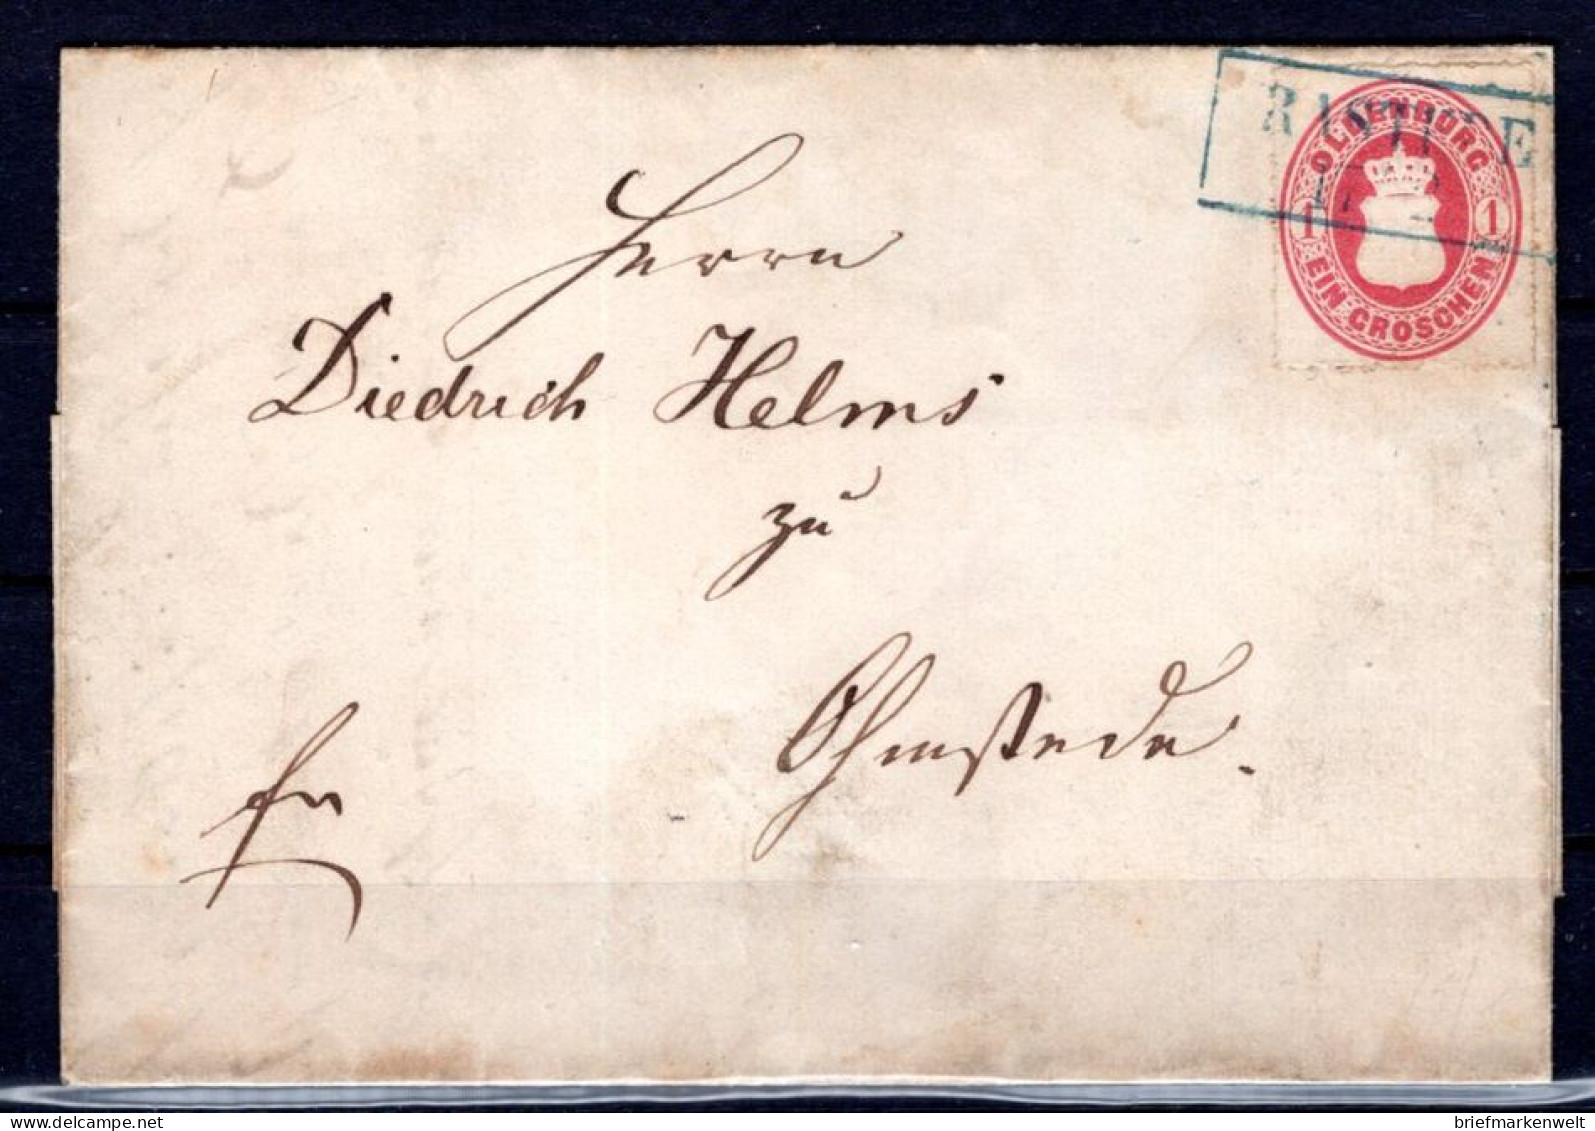 RASTEDE
OLDENBURG
1 1
EIN GROSCHEN
Herrn
Diedrich Helms
zu
Ohmstede.
fr
briefmarkenwelt